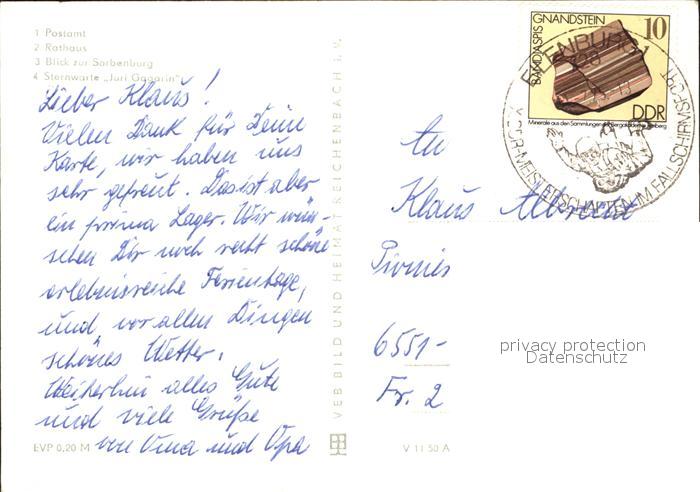 1 Postamt
2 Rathaus
3 Blick zur Sorbenburg
4 Sternwarte „Juri Gagarin"
Lieber Klaus!
Vielen Dank für Deine
Karte, wir haben uns
sehr gefreut. Das ist aber
ein prima Lager. Wir wün-
schen Dir noch recht schöne
erlebnisreiche Ferientage,
und vor allen Dingen
schönes Wetter.
Weiterhin alles Gute
und viele Grüße
von Oma und Opa
EVP 0,20 M
VEB BILD UND HEIMAT REICHENBACH i. V.
V 11 50 A
BANDJASPIS
GNANDSTEIN
10
DDR
Minerale aus den Sammlungen der Bergakademie Freiberg
EILENBURG 1
DDR-MEISTERSCHAFTEN IM FALLSCHIRMSPORT
An
Klaus
Pionier
6551-
Fr. 2
privacy protection
Datenschutz